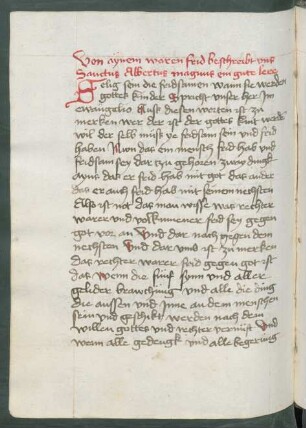 Von aynem waren frid beschreibt uns
Sanctus Albertus magnus ein gute lere
Selig sein die fridsamen wann sie werden
gottes kinder Spricht unser her Im
ewangelio Aus diesen worten ist zu
mercken wer der ist der gottes kint werden
wil der selb mus ye fridsam sein und frid
haben Nun das ein mensch frid hab und
fridsam sey dar zu gehoren zwey dingk
ayns das er frid hab mit got das ander
das er auch frid hab mit seinem nechsten
Also ist not das man wisse was rechter
warer und volkumener frid sey gegen
got vor an Und dar nach gegen dem
nechsten Und dar umb ist zu mercken
das rechter warer frid gegen got ist
das wenn die fünf synn und aller
gelider brauchung und alle die ding
die aussen und Inne an dem menschen
sein und geschikt werden nach dem
willen gottes und rechter vernuft Und
wenn alle gedengk und alle begerung